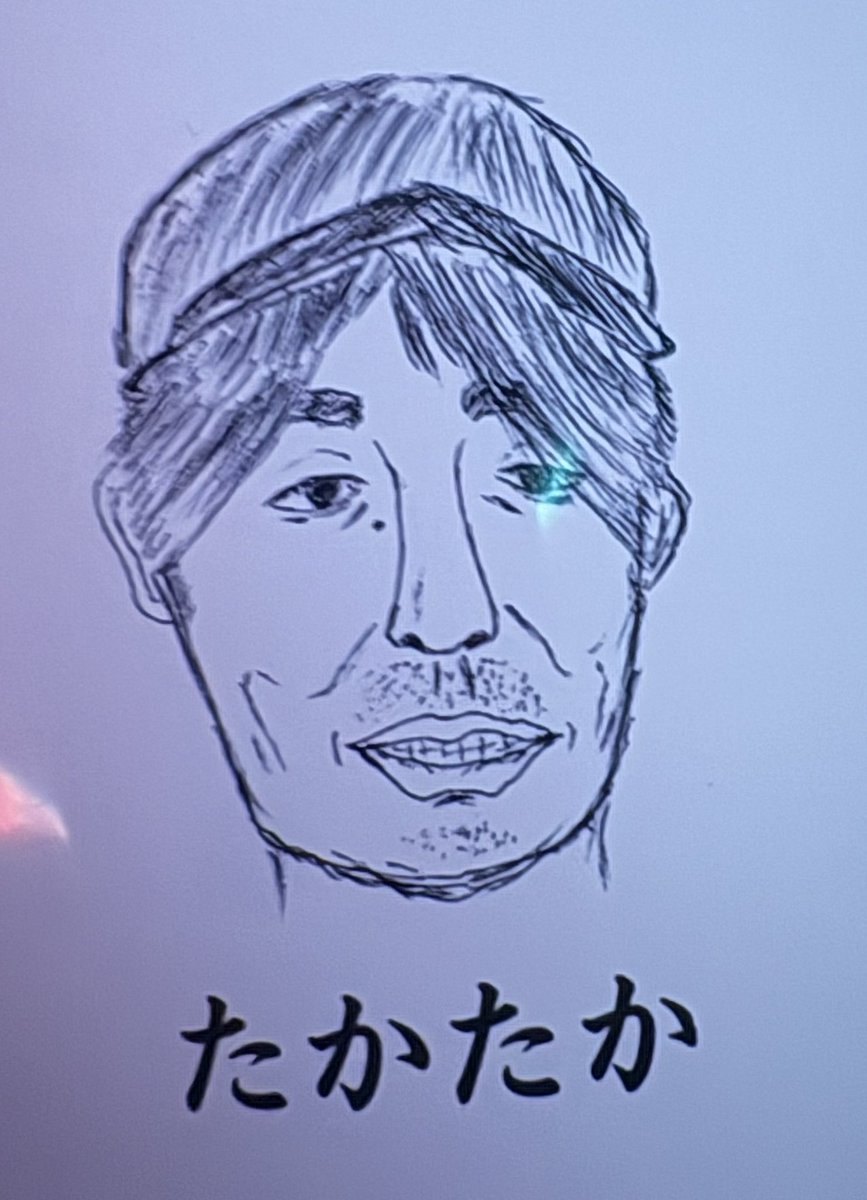 たかたか